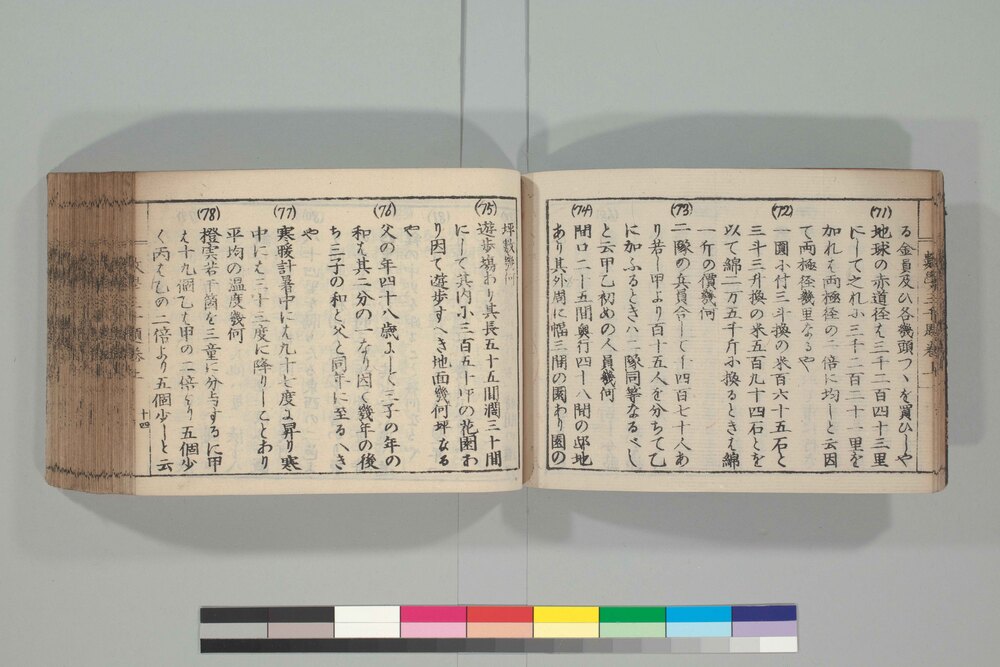 る金員及ひ各幾頭つゝを買ひしや
(71)
地球の赤道径は三千二百四十三里
にして之れに三千二百二十一里を
加れは両極径の二倍に均しと云因
て両極径幾里なるや
(72)
一圓に付三斗換の米百六十五石と
三斗三升換の米五百九十四石とを
以て綿二万五千斤に換るときは綿
一斤の價幾何
(73)
二隊の兵員合して十四百七十人あ
り若し甲より百十五人を分ちて乙
に加ふるときハ二隊同等なるべし
と云甲乙初めの人員幾何
(74)
間口二十五間奥行四十八間の邸地
あり其外周に幅三間の園わり園の
坪数幾何
(75)
遊歩場わり其長五十五間濶三十間
にして其内に三百五十坪の花園わ
り因て遊歩すへき地面幾何坪なる
や
(76)
父の年四十八歳にして三子の年の
和は其二分の一なり因て幾年の後
ち三子の和と父と同年に至るへき
や
(77)
寒暖計暑中には九十七度に昇り寒
中には三十三度に降りしことわり
平均の温度幾何
(78)
橙実若干箇を三童に分与するに甲
は十九個乙は甲の二倍より五個少
く丙は乙の二倍より五個少しと云
十四